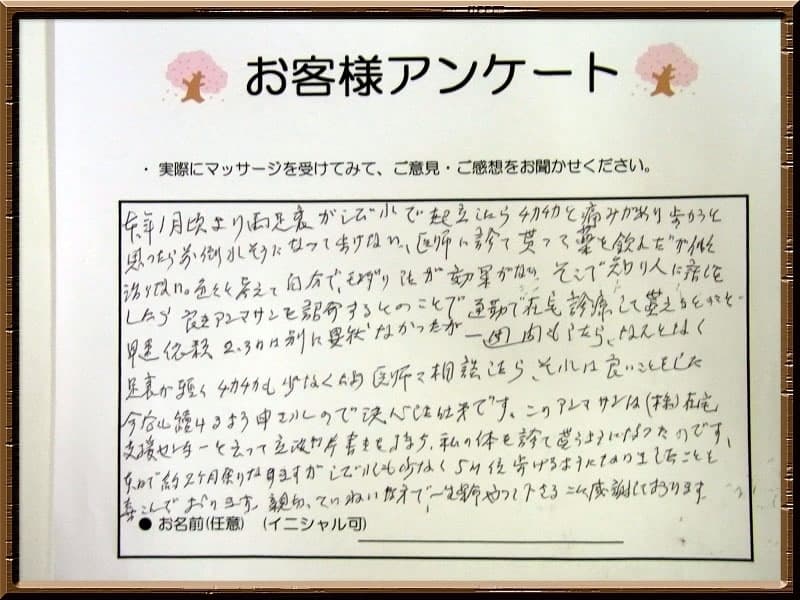 お客様アンケート
・ 実際にマッサージを受けてみて、ご意見・ご感想をお聞かせください。
本年1月頃より両足裏がシビれで起立したらチカチカと痛みがあり歩かうと
思ったら前倒れそうになって歩けない、医師に診て貰って薬を飲んだが
治りない。色々と考えて自分でもんだり 効果がない、そこで知り人に話を
したら 良きアンマサンを紹介するとのことで 通勤で在宅診療して貰えると
早速依頼 2.3日は別に異状なかったが 一週間もしたら、なんとなく
足裏が軽く チカチカも少なく 医師に相談したら、それは良いことをした
今后も続けるよう申されので決心した 次第です。このアンマサンは(株)在宅
支援センターと云って立派な 私の体を診て貰うようになったのです、
約2ヶ月余りなりますがシビれも少なく5M位歩けるようになりましたことを
喜んでおります。親切、ていねい 一生懸命やって下さることに感謝しております。
● お名前(任意) (イニシャル可)